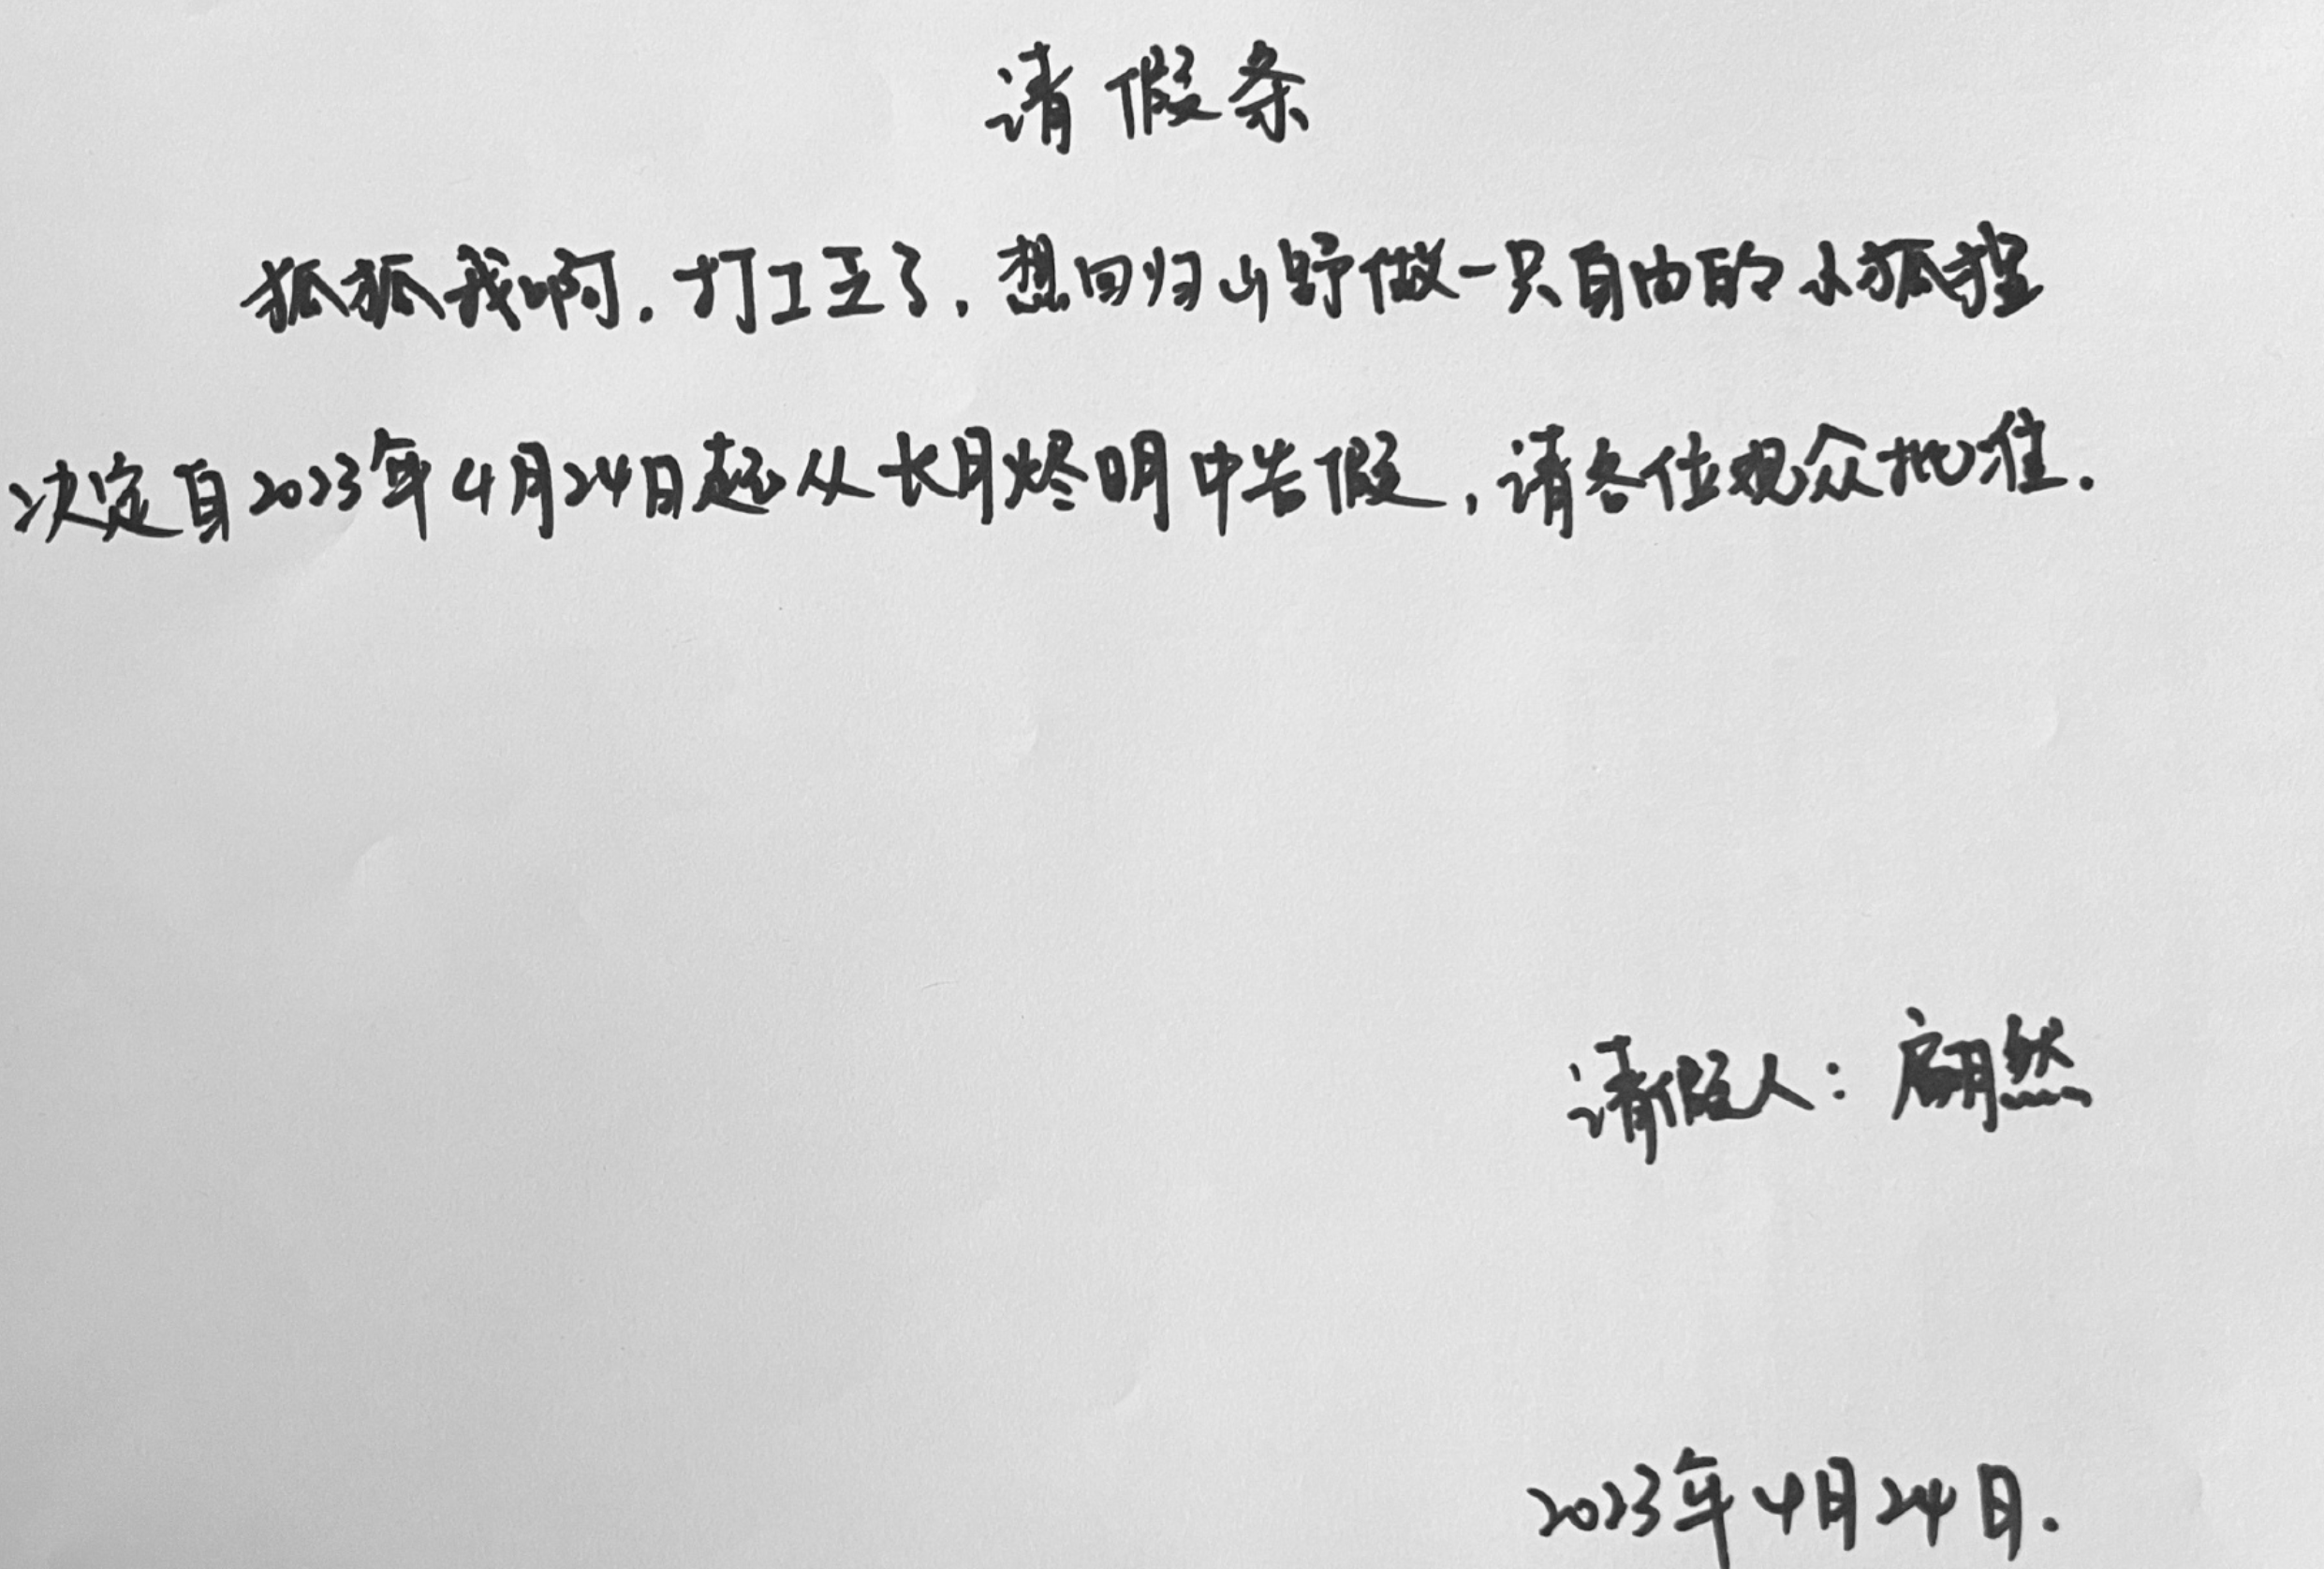 请假条
狐狐我啊.打工王了,想回归山野做一只自由的小狐狸
决定自2023年4月24日起从长月烬明中告假,请各位观众批准.
请假人:翩然
2023年4月24日.